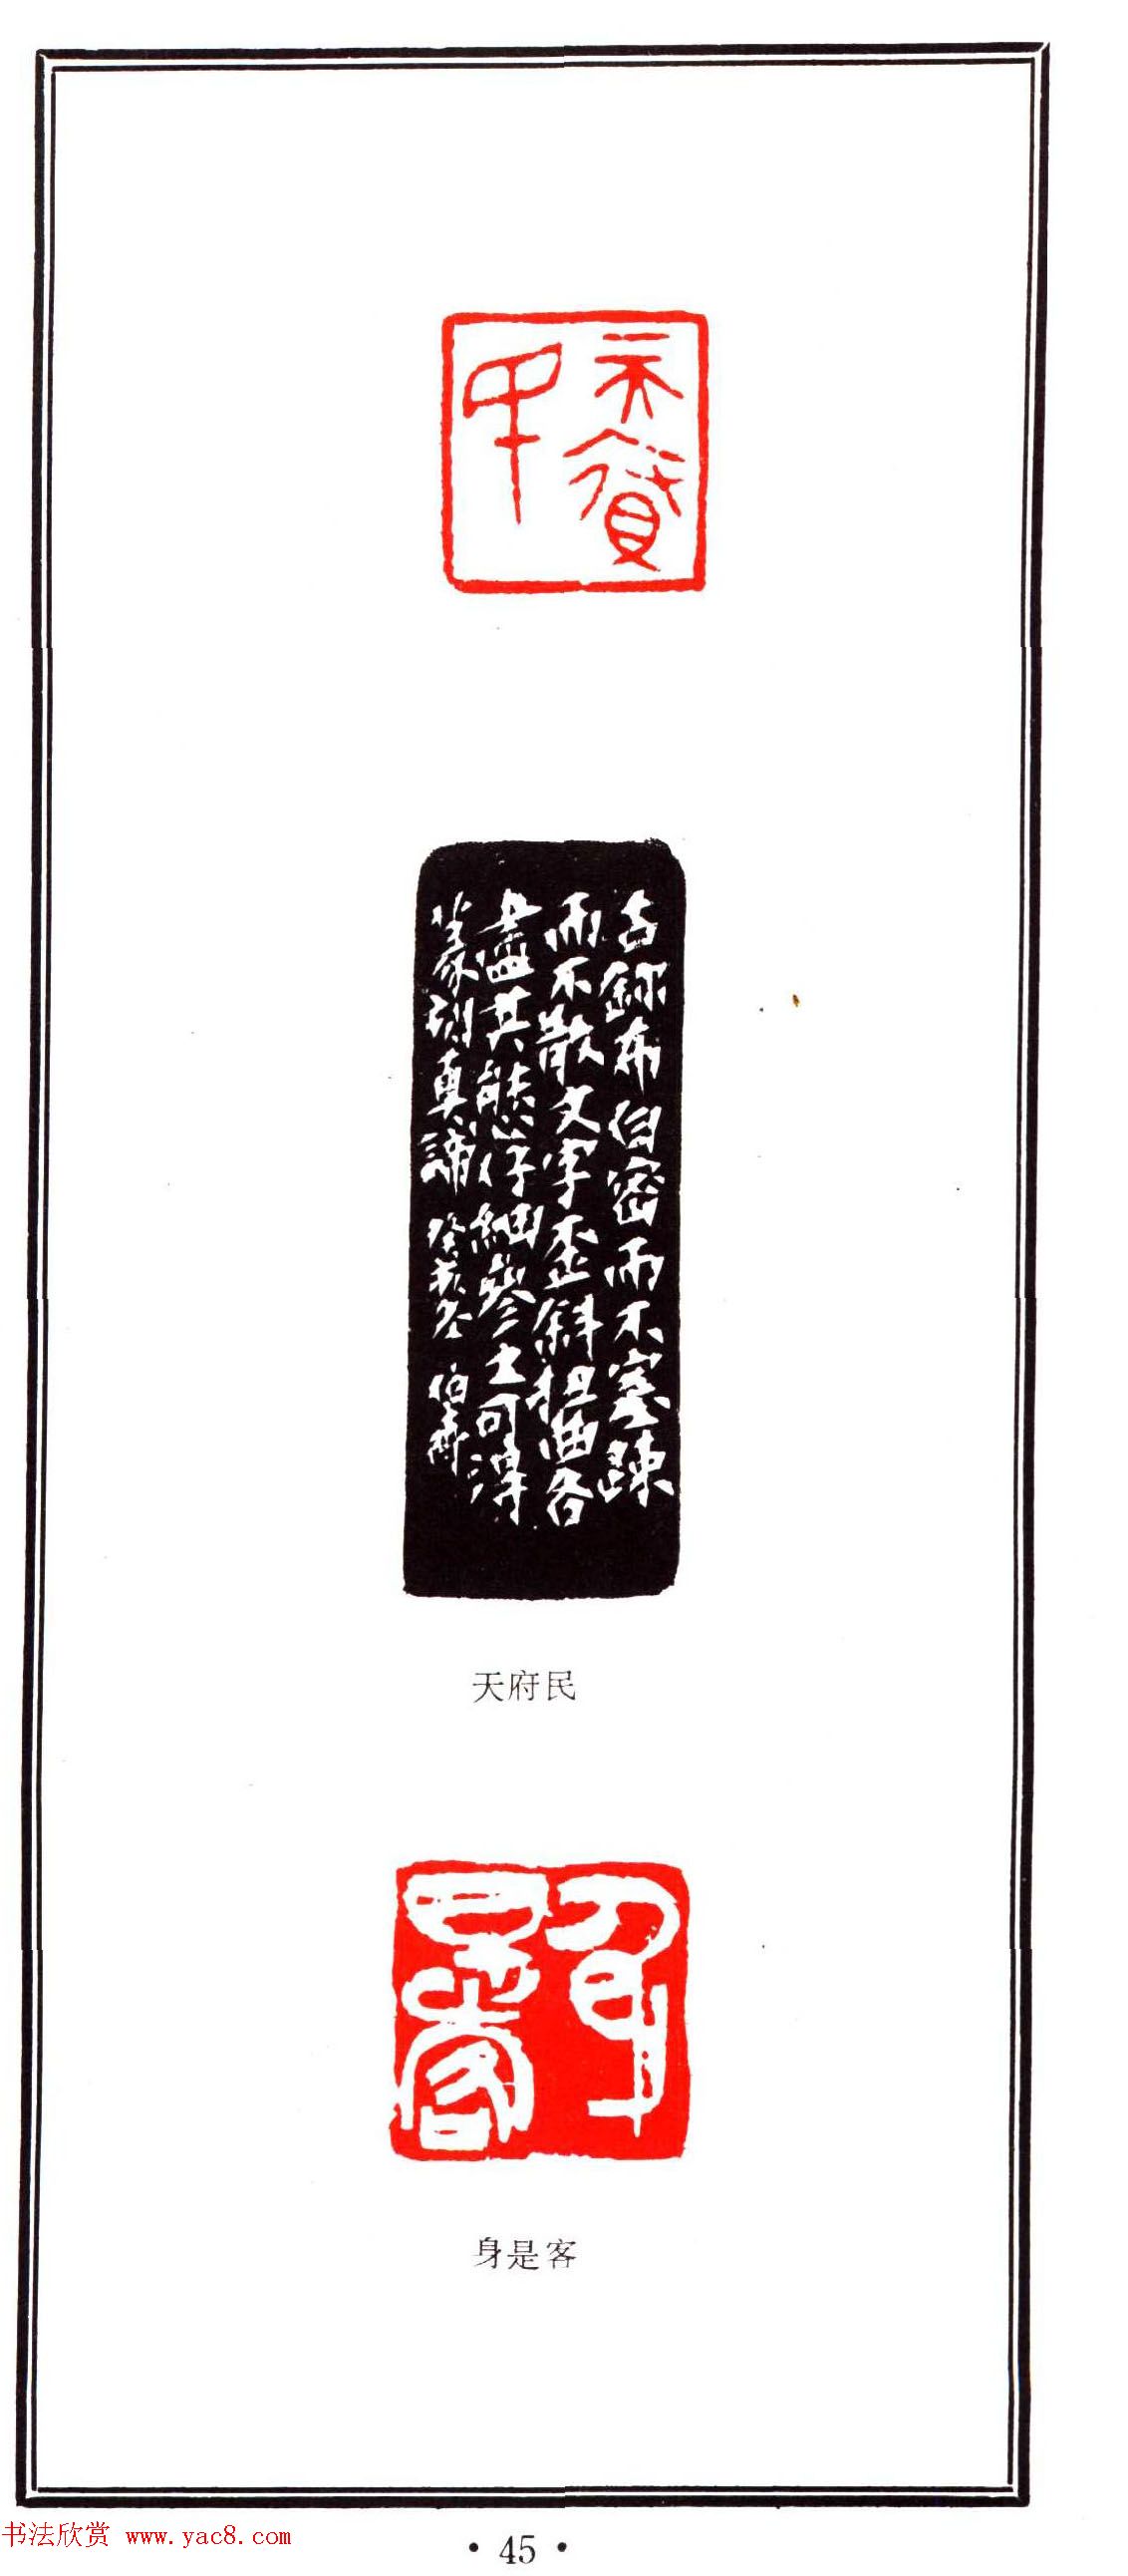 天府民
古鉨布白密而不塞疎
而不散文字歪斜扭曲各
尽盡其態仔細參之可得
篆刻真諦 癸亥冬 伯齊
天府民
身是客
书法欣赏 www.yac8.com
·45·